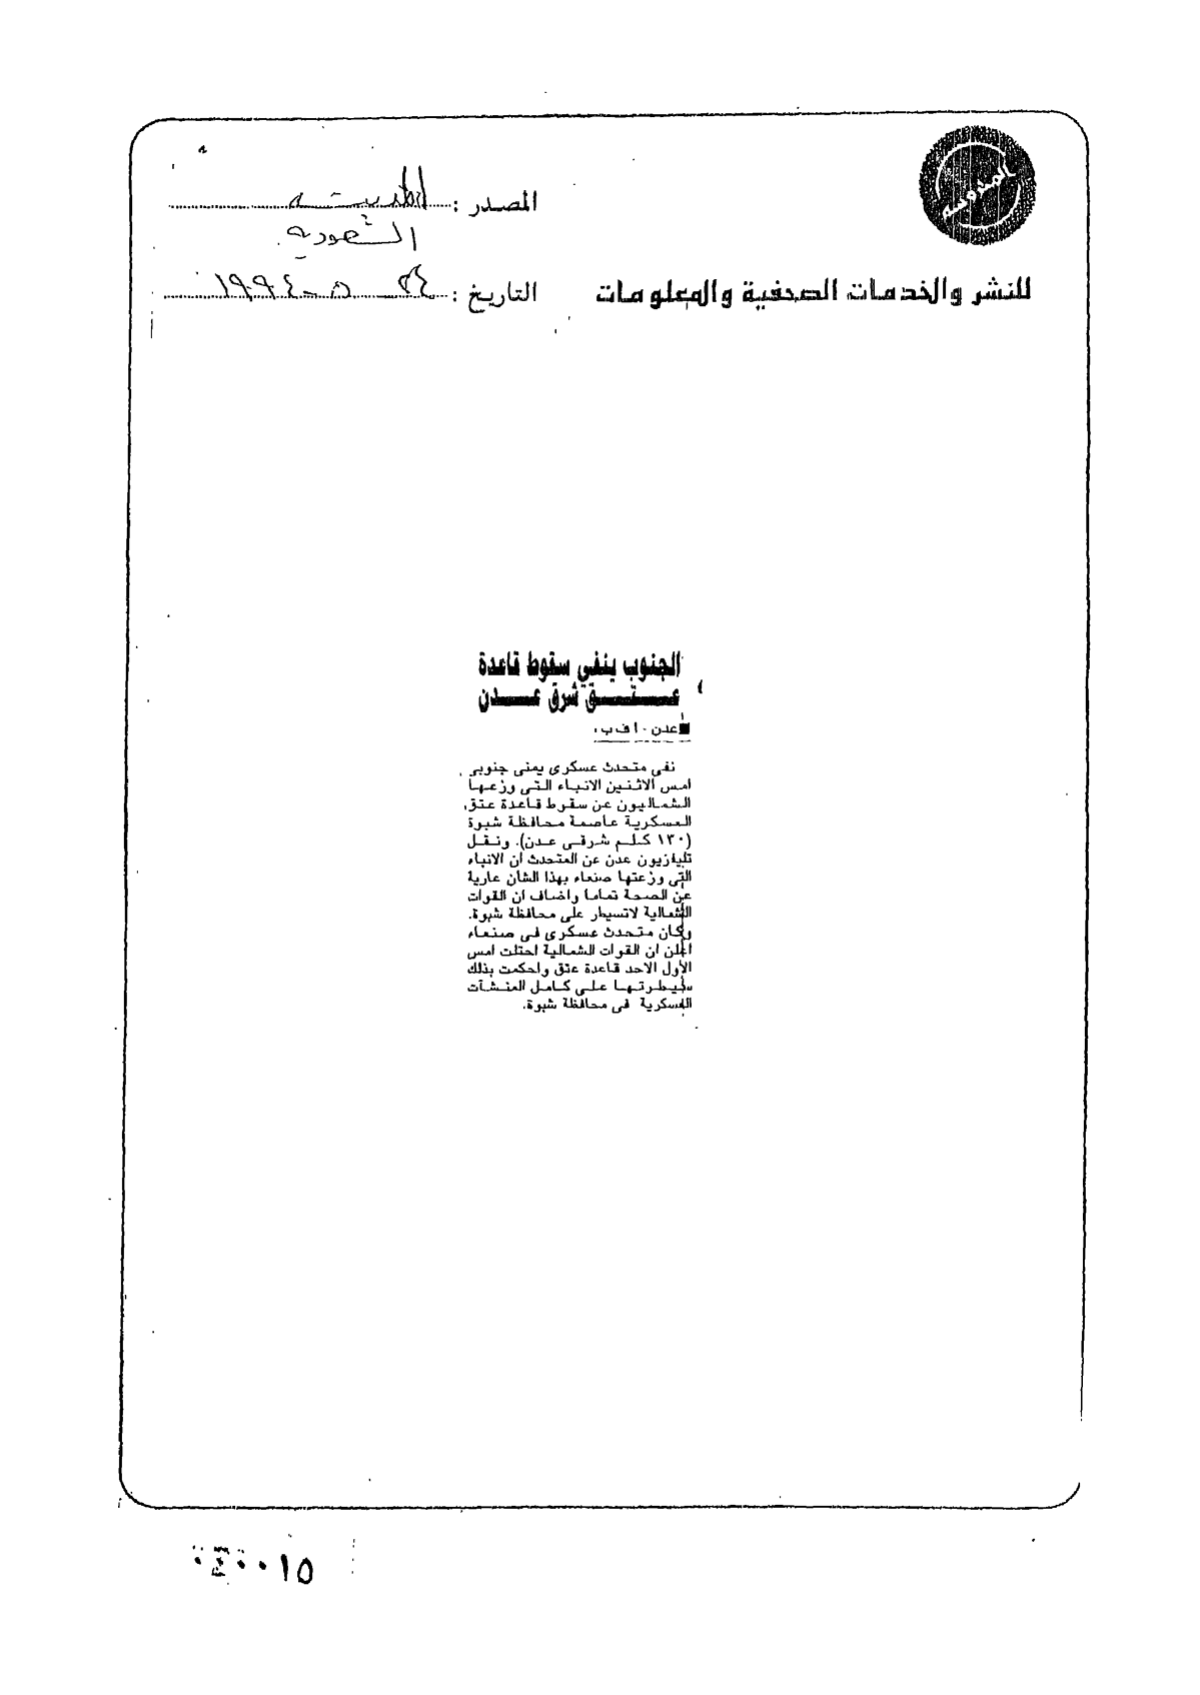 المصدر : المدينه
السعوديه
للنشر والخدمات الصحفية والمعلومات
التاريخ : ٢٤ ٥ - ١٩٩٤
الجنوب ينفي سقوط قاعدة
عتق شرق عدن
عدن - ا ف ب
نفى متحدث عسكرى يمنى جنوبى
امس الاثنين الانباء التى وزعها
الشماليون عن سقوط قاعدة عتق،
العسكرية عاصمة محافظة شبوة
(١٣٠ كلم شرقى عدن). ونقل
تليفزيون عدن عن المتحدث ان الانباء
التى وزعتها صنعاء بهذا الشان عارية
عن الصحة تماما واضاف ان القوات
الشمالية لاتسيطر على محافظة شبوة.
وكان متحدث عسكرى فى صنعاء
اعلن ان القوات الشمالية احتلت امس
الأول الاحد قاعدة عتق واحكمت بذلك
سيطرتها على كامل المنشآت
العسكرية فى محافظة شبوة.